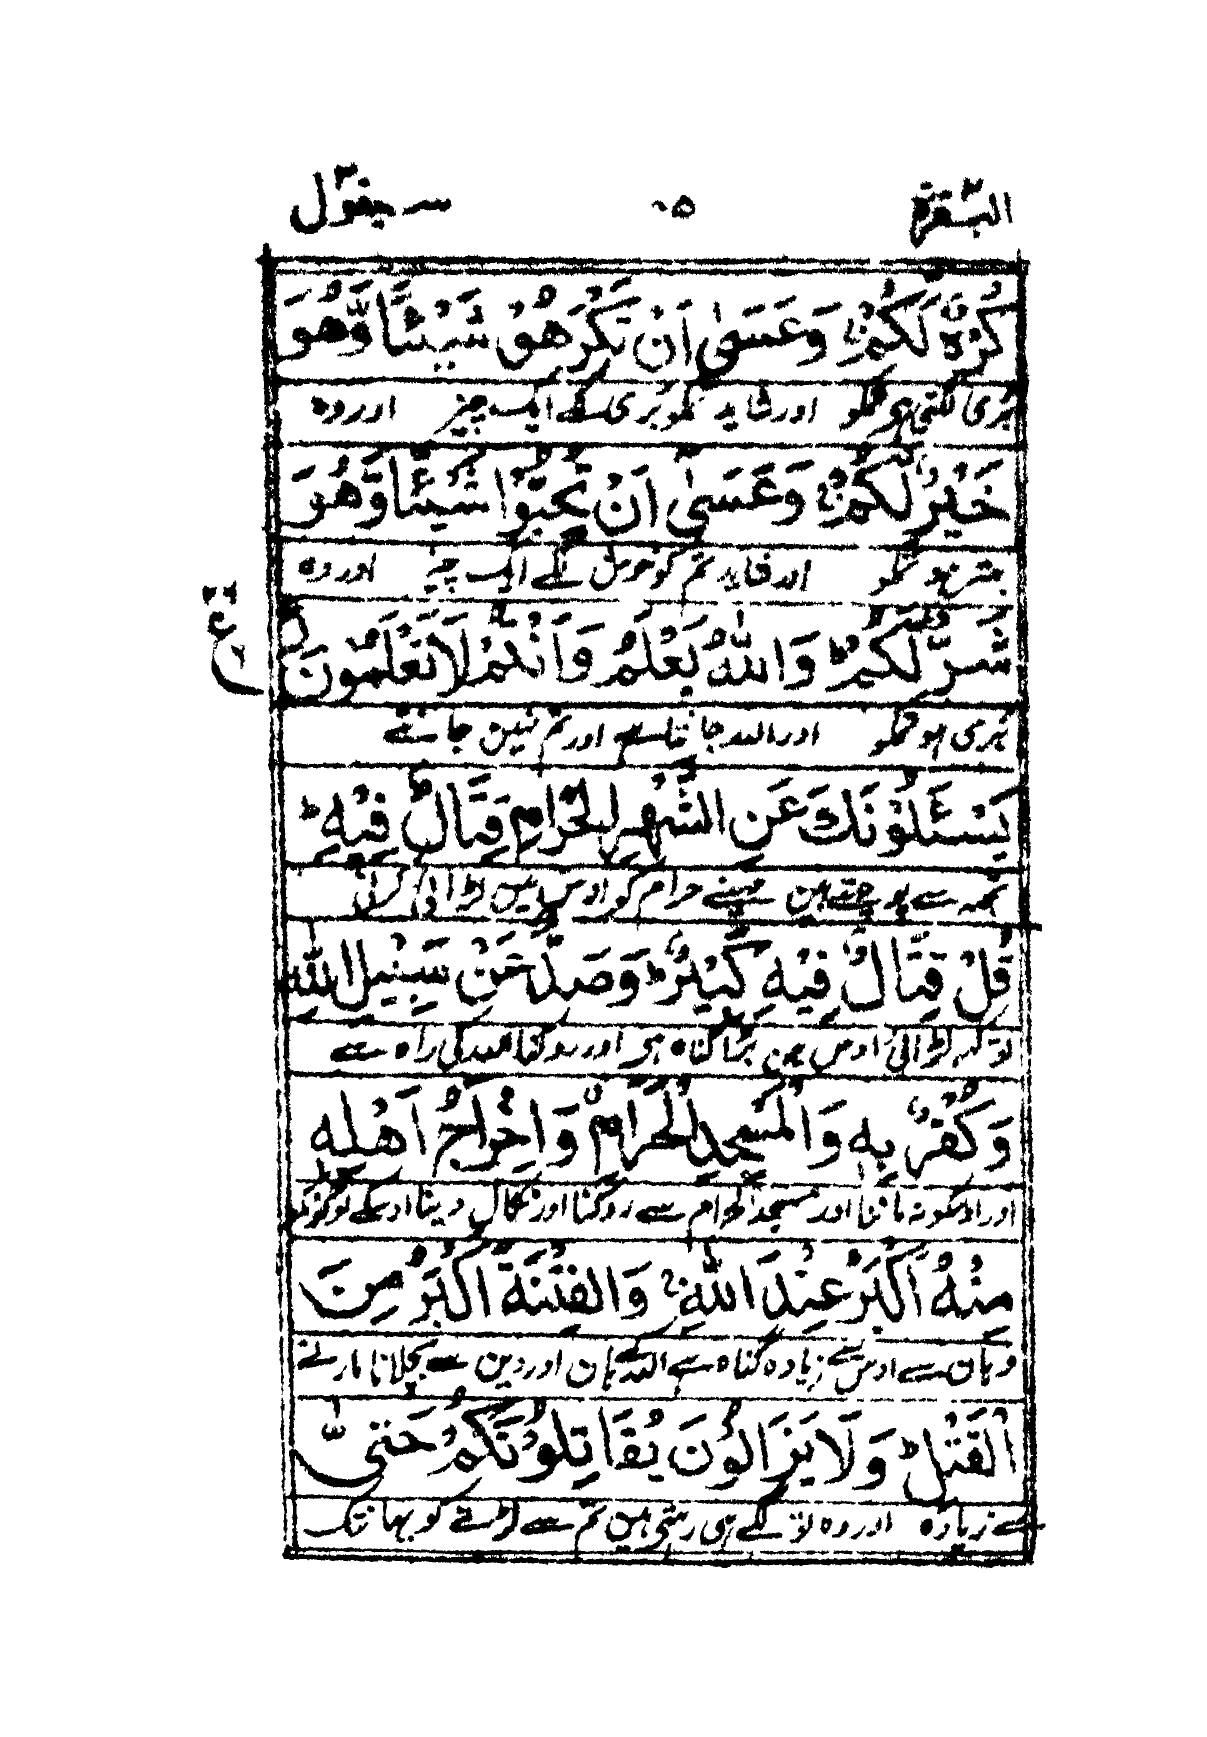 البقرة ٢ ٥٠ سيقول ٢
كُرْهٌ لَّكُمْ ۚ وَعَسٰٓى اَنْ تَكْرَهُوْا شَيْـًٔا وَّهُوَ
بُری لگتی ہی تمکو اور شاید تمکو بُری لگے ایک چیز اور وہ
خَيْرٌ لَّكُمْ ۚ وَعَسٰٓى اَنْ تُحِبُّوْا شَيْـًٔا وَّهُوَ
بہتر ہو تمکو اور شاید تم کو خوش لگے ایک چیز اور وہ
شَرٌّ لَّكُمْ ؕ وَاللّٰهُ يَعْلَمُ وَاَنْتُمْ لَا تَعْلَمُوْنَ
بُری ہو تمکو اور اللہ جانتا ہے اور تم نہیں جانتے
يَسْـَٔلُوْنَكَ عَنِ الشَّهْرِ الْحَرَامِ قِتَالٍ فِيْهِ ؕ
تجھہ سے پوچھتے ہین مہینے حرام کو اوس میں لڑائی کرنی
قُلْ قِتَالٌ فِيْهِ كَبِيْرٌ ؕ وَصَدٌّ عَنْ سَبِيْلِ اللّٰهِ
تو کہہ لڑائی اوس مین بڑا گناہ ہی اور روکنا اللہ کی راہ سے
وَكُفْرٌۢ بِهٖ وَالْمَسْجِدِ الْحَرَامِ ۗ وَاِخْرَاجُ اَهْلِهٖ
اور اوسکو نہ ماننا اور مسجد الحرام سے روکنا اور نکال دینا اوسکے لوگونکو
مِنْهُ اَكْبَرُ عِنْدَ اللّٰهِ ۚ وَالْفِتْنَةُ اَكْبَرُ مِنَ
وہان سے اوس سے زیادہ گناہ ہے اللہ کے ہان اور دین سے بچلانا مارنے
الْقَتْلِ ؕ وَلَا يَزَالُوْنَ يُقَاتِلُوْنَكُمْ حَتّٰى
سے زیادہ اور وہ تو لگے ہی رہتے ہین تم سے لڑنے کو یہانتک